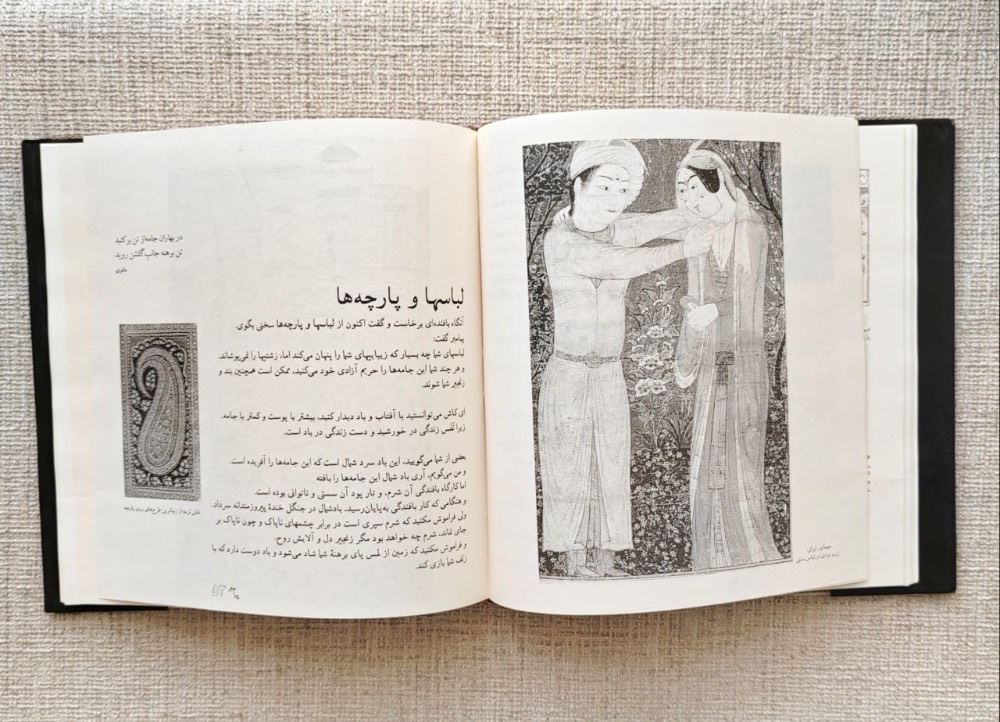 در بهاران جامه از تن برکنید
تن برهنه جانب گلشن روید
مثنوی
لباسها و پارچه‌ها
آنگاه بافنده‌ای برخاست و گفت اکنون از لباسها و پارچه‌ها سخنی بگوی.
پیامبر گفت:
لباسهای شما چه بسیار که زیباییهای شما را پنهان می‌کند اما، زشتیها را نمی‌پوشاند.
و هر چند شما این جامه‌ها را حریم آزادی خود می‌کنید، ممکن است همچنین بند و
زنجیر شما شوند.
ای کاش می‌توانستید با آفتاب و باد دیدار کنید، بیشتر با پوست و کمتر با جامه.
زیرا نَفَس زندگی در خورشید و دست زندگی در باد است.
بعضی از شما می‌گویید، این باد سرد شمال است که این جامه‌ها را آفریده است.
و من می‌گویم، آری باد شمال این جامه‌ها را بافته
اما کارگاه بافندگی آن شرم، و تار پود آن سستی و ناتوانی بوده است.
و هنگامی که کار بافندگی به پایان رسید، باد شمال در جنگل خندهٔ پیروزمندانه سر داد.
ولی فراموش مکنید که شرم سپری است در برابر چشمهای ناپاک و چون ناپاک بر
جای نماند، شرم چه خواهد بود مگر زنجیر دل و آلایش روح.
و فراموش مکنید که زمین از لمس پای برهنهٔ شما شاد می‌شود و باد دوست دارد که با
زلف شما بازی کند.
نقش ترمه از زیباترین طرح‌های روی پارچه
۵۳
ایران